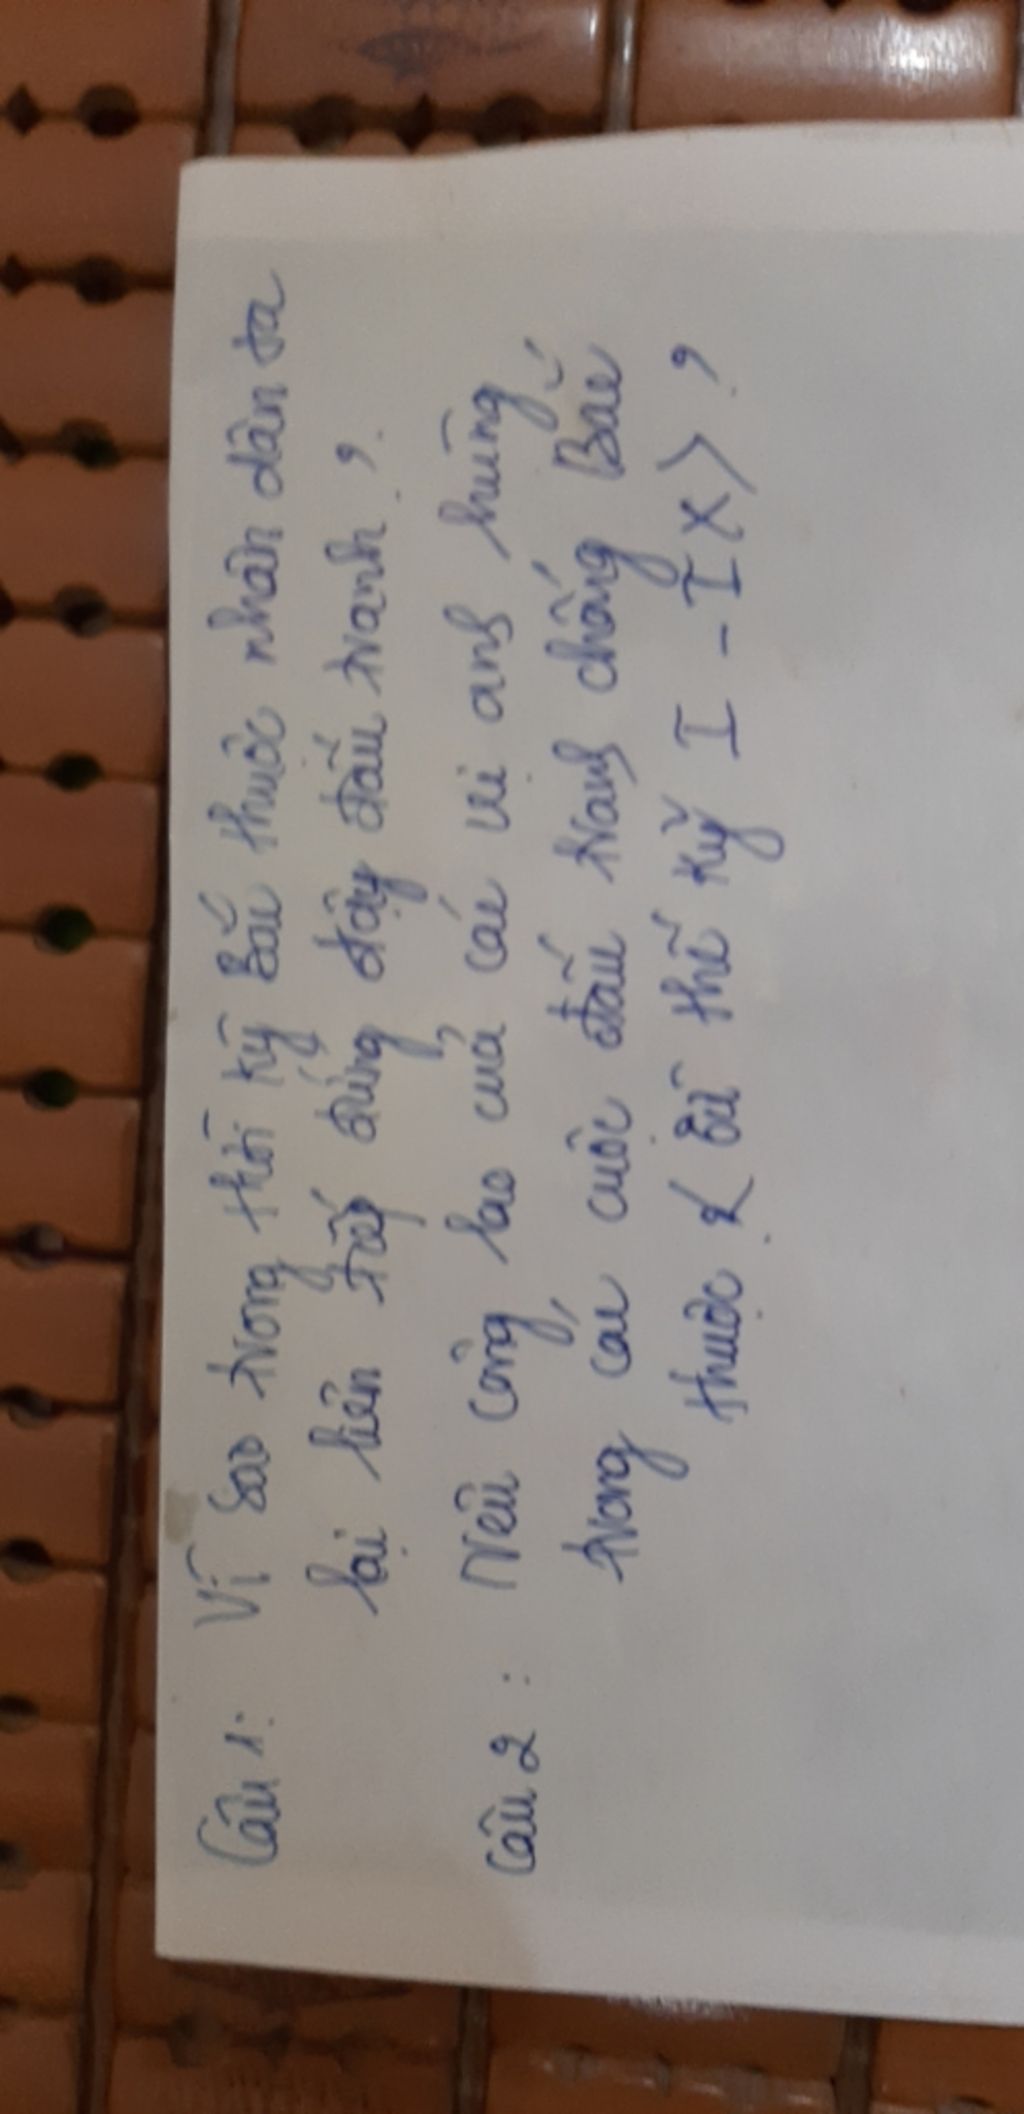 Câu 1: Vì sao trong thời kỳ Bắc thuộc nhân dân ta
lại liên tiếp đứng dậy đấu tranh ?
Câu 2 : Nêu công lao của các vị anh hùng
trong các cuộc đấu tranh chống Bắc
thuộc < Từ thế kỷ I - IX > ?